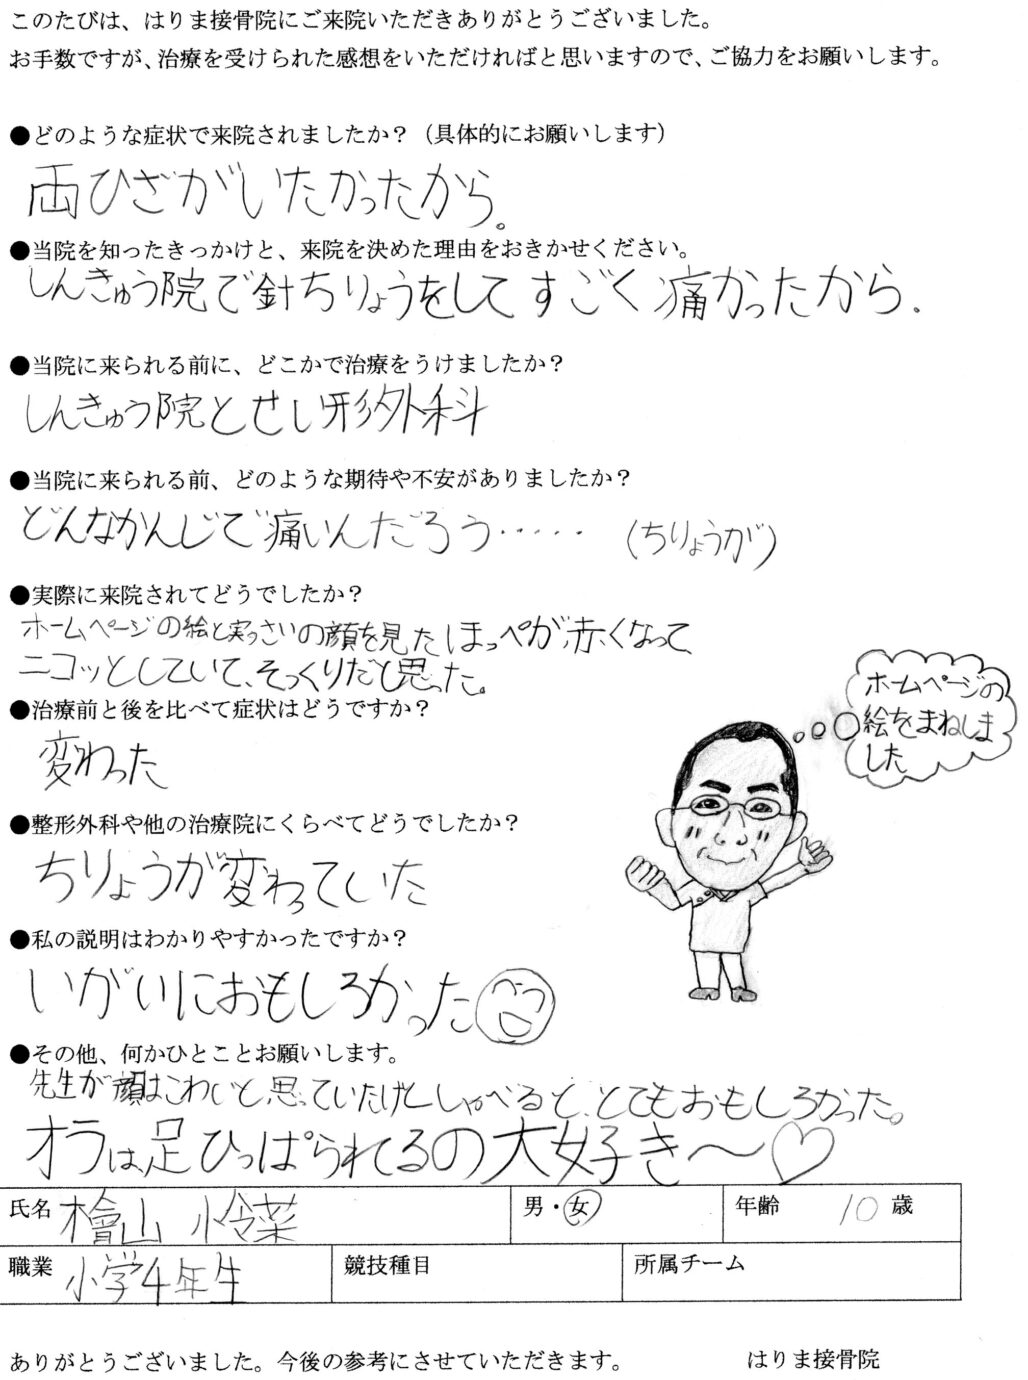 このたびは、はりま接骨院にご来院いただきありがとうございました。
お手数ですが、治療を受けられた感想をいただければと思いますので、ご協力をお願いします。
●どのような症状で来院されましたか？（具体的にお願いします）
両ひざがいたかったから。
●当院を知ったきっかけと、来院を決めた理由をおきかせください。
しんきゅう院で針ちりょうをしてすごく痛かったから.
●当院に来られる前に、どこかで治療をうけましたか？
しんきゅう院とせい形外科
●当院に来られる前、どのような期待や不安がありましたか？
どんなかんじで痛いんだろう・・・・・ (ちりょうが)
●実際に来院されてどうでしたか？
ホームページの絵と実っさいの顔を見たほっぺが赤くなって、
ニコッとしていて、そっくりだと思った。
●治療前と後を比べて症状はどうですか？
変わった
ホームページの
絵をまねしま
した
●整形外科や他の治療院にくらべてどうでしたか？
ちりょうが変わっていた
●私の説明はわかりやすかったですか？
いがいにおもしろかった
●その他、何かひとことお願いします。
先生が顔はこわいと思っていたけどしゃべると、とてもおもしろかった。
オラは足ひっぱられるの大好き～♡
氏名 檜山 怜菜 男・女 年齢 10歳
職業 小学4年生 競技種目 所属チーム
ありがとうございました。今後の参考にさせていただきます。 はりま接骨院